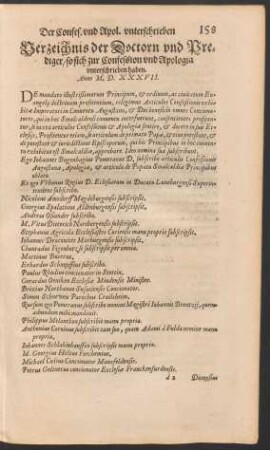 Der Confes. vnd Apol. vnterschrieben 158
Verzeichnis der Doctorn vnd Pre-
diger, so sich zur Confession vnd Apologia
vnterschrieben haben.
Anno M. D. XXXVII.
DE mandato illustrissimorum Principum, & ordinum, ac ciuitatum Eu-
angelij doctrinam profitentium, relegimus Articulos Confessionis exhi-
bitæ Imperatori in Conuentu Augustano, & Dei beneficio omnes Concionato-
res, qui in hoc Smalcaldensi conuentu interfuerunt, consentientes profiten-
tur, se iuxta articulos Confessionis & Apologiæ sentire, & docere in suis Ec-
clesijs, Profitentur etiam, se articulum de primatu Papæ, & eius potestate, & de
potestate & iurisdictione Episcoporum, qui hic Principibus in hoc con-
uentu exhibitus est Smalcaldiæ, approbare. Ideo nomina sua subscribunt.
Ego Iohannes Bugenhagius Pomeranus D, subscribo articulis Confessionis
Augustanæ, Apologiæ, & articulo de Papatu Smalcaldiæ Principibus
oblato.
Et ego Vrbanus Regius D. Ecclesiarum in Ducatu Luneburgensi Superin-
tendens subscribo.
Nicolaus Amsdorff Magdeburgensis subscripsit.
Georgius Spalatinus Aldenburgensis subscripsit.
Andreas Osiander subscribo.
M. Vitus Dieterich Noribergensis subscribo.
Stephanus Agricola Ecclesiastes Curiensis manu propria subscripsit.
Iohannes Draconites Marburgensis subscripsit.
Chunradus Figenbotz se subscripsit per omnia.
Martinus Bucerus.
Erhardus Schnepffius subscribo.
Paulus Rhodius concionator in Stettin.
Gerardus Oniken Ecclesiæ Mindensis Minister.
Brixius Northanus Susatiensis Concionator.
Simon Schneweis Parochus Crailsheim.
Rursum ego Pomeranus subscribo nomine Magistri Iohannis Brentij, quem-
admodum mihi mandauit.
Philippus Melanthon subscribit manu propria.
Anthonius Coruinus subscribit tam suo, quam Adami à Fulda nomine manu
propria.
Iohannes Schlainhauffen subscripsit manu propria.
M. Georgius Heltus Forchemius.
Michael Celius Concionator Mansfeldensis.
Petrus Geltnerus concionator Ecclesiæ Franckenfurdensis.
d 2 Dionysius